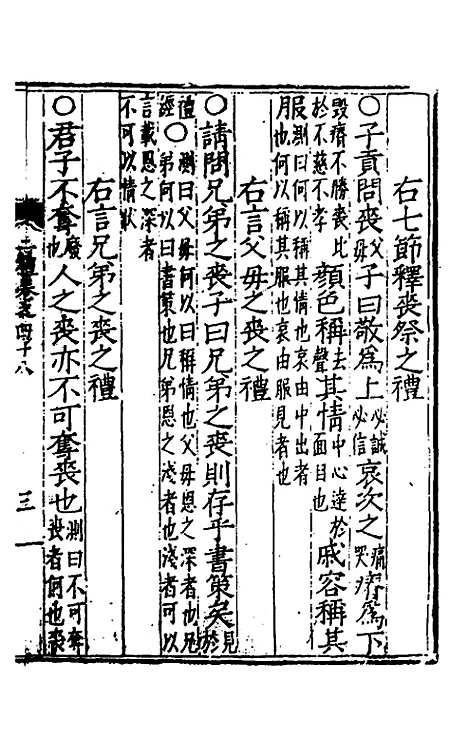 右七節釋喪祭之禮
○子貢問喪父母子曰敬爲上必誠必信哀次之痛哭瘠爲下
毀瘠不勝喪比於不慈不孝顏色稱去聲其情中心達於面目也戚容稱其
服測曰何以稱其情也哀由中出者也何以稱其服也哀由服見者也
右言父母之喪之禮
○請問兄弟之喪子曰兄弟之喪則存乎書策矣見於
禮經○測曰父母何以曰稱情也父母恩之深者也兄弟何以曰書策也兄弟恩之淺者也淺者可以
言載恩之深者不可以情狀
右言兄弟之喪之禮
○君子不奪廢也人之喪亦不可奪喪也測曰不可奪喪者何也喪
三